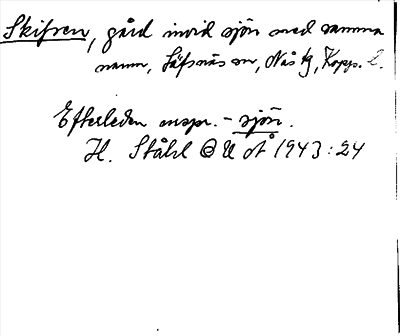 Skifsen, gård invid sjön med samma
namn, Säfsnäs sn, Nås tg, Kopp. l.
Efterleden urspr. - sjön.
H. Ståhl OUÅ 1943:24